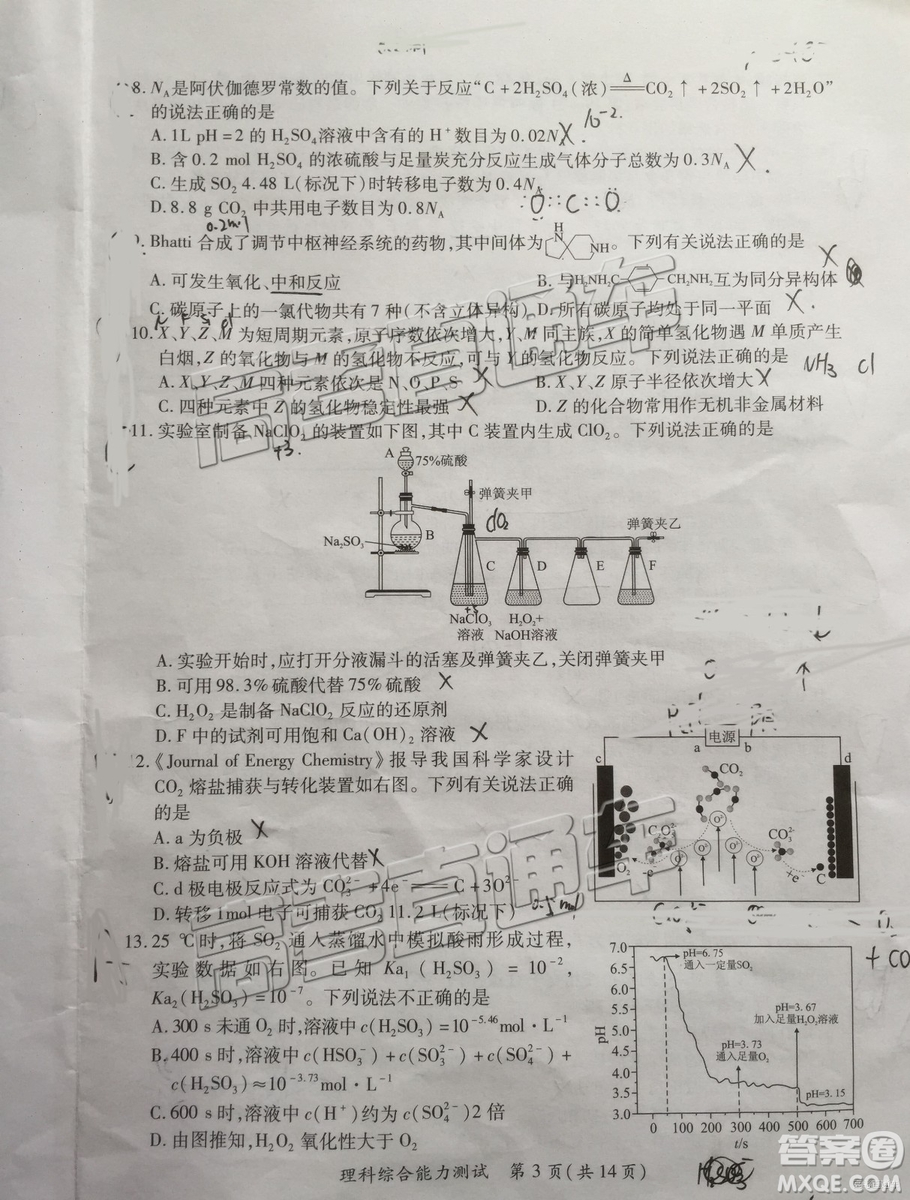 8. N_A是阿伏伽德罗常数的值。下列关于反应“C+2H₂SO₄(浓)=△=CO₂↑+2SO₂↑+2H₂O”
的说法正确的是
A. 1L pH=2 的 H₂SO₄溶液中含有的 H⁺数目为 0.02N X 10⁻².
B. 含 0.2 mol H₂SO₄ 的浓硫酸与足量炭充分反应生成气体分子总数为 0.3N_A X
C. 生成 SO₂ 4.48 L(标况下)时转移电子数为 0.4N_A
D. 8.8 g CO₂ 中共用电子数目为 0.8N_A
9. Bhatti 合成了调节中枢神经系统的药物,其中间体为 H N NH。下列有关说法正确的是
A. 可发生氧化、中和反应 B. 与H₂NH₂C CH₂NH₂互为同分异构体
C. 碳原子上的一氯代物共有 7 种(不含立体异构) D. 所有碳原子均处于同一平面 X
10. X、Y、Z、M 为短周期元素,原子序数依次增大,Y、M 同主族,X 的简单氢化物遇 M 单质产生
白烟,Z 的氧化物与 M 的氢化物不反应,可与 Y 的氢化物反应。下列说法正确的是
NH₃ Cl
A. X、Y、Z、M 四种元素依次是 N、O、P、S X B. X、Y、Z 原子半径依次增大 X
C. 四种元素中 Z 的氢化物稳定性最强 X D. Z 的化合物常用作无机非金属材料
11. 实验室制备 NaClO₂ 的装置如下图,其中 C 装置内生成 ClO₂。下列说法正确的是
+3
A 75%硫酸
弹簧夹甲
ClO₂ 弹簧夹乙
Na₂SO₃ B
C D E F
NaClO₃ H₂O₂+
溶液 NaOH溶液
A. 实验开始时,应打开分液漏斗的活塞及弹簧夹乙,关闭弹簧夹甲
B. 可用 98.3%硫酸代替 75%硫酸 X
C. H₂O₂ 是制备 NaClO₂ 反应的还原剂
D. F 中的试剂可用饱和 Ca(OH)₂ 溶液 X
12.《Journal of Energy Chemistry》报导我国科学家设计
CO₂ 熔盐捕获与转化装置如右图。下列有关说法正确
的是
A. a 为负极 X
B. 熔盐可用 KOH 溶液代替 X
C. d 极电极反应式为 CO₃²⁻+4e⁻=C+3O²⁻
D. 转移 1mol 电子可捕获 CO₂ 11.2 L(标况下) 0.5mol
电源
c a b d
CO₂
O²⁻ O²⁻ O²⁻ O²⁻
CO₃²⁻
O₂ e C
13. 25 ℃时,将 SO₂ 通入蒸馏水中模拟酸雨形成过程,
实验数据如右图。已知 Ka₁(H₂SO₃)=10⁻²,
Ka₂(H₂SO₃)=10⁻⁷。下列说法不正确的是
A. 300 s 未通 O₂ 时,溶液中 c(H₂SO₃)=10⁻⁵·⁴⁶mol·L⁻¹
B. 400 s 时,溶液中 c(HSO₃⁻)+c(SO₄²⁻)+c(SO₃²⁻)+
c(H₂SO₃)≈10⁻³·⁷³mol·L⁻¹
C. 600 s 时,溶液中 c(H⁺)约为 c(SO₄²⁻)2 倍
D. 由图推知,H₂O₂ 氧化性大于 O₂
+ CO
pH
7.0
6.5
6.0
5.5
5.0
4.5
4.0
3.5
3.0
pH=6.75
通入一定量SO₂
pH=3.67
加入足量H₂O₂溶液
pH=3.73
通入足量O₂
pH=3.15
0 100 200 300 400 500 600 700
t/s
理科综合能力测试 第 3 页(共 14 页)
高考直通车
高考直通车
答案圈